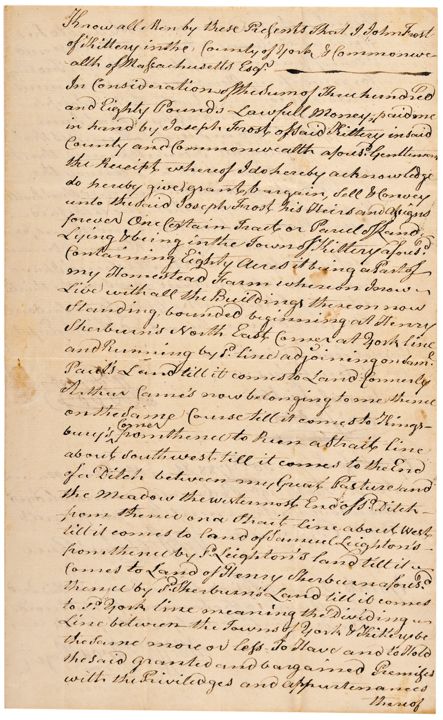 Know all Men by these Presents That I John Frost
of Kittery in the County of York & Commonwe
alth of Massachusetts Esqr
In Consideration of the Sum of Three hundred
and Eighty Pounds Lawfull Money paid me
in hand by Joseph Frost of said Kittery in said
County and Commonwealth afousd Gentleman
the Receipt whereof I do hereby acknowledge
do hereby give, grant, bargain, Sell & Convey
unto the said Joseph Frost his Heirs and Assigns
forever One Certain Tract or Parcel of Land
Lying & being in the Town of Kittery afousd
Containing Eighty Acres it being a Part of
my Homestead Farm whereon I now
Live with all the Buildings thereon now
Standing bounded beginning at Henry
Sherburn's North East Corner at York line
and Running by sd line adjoining on
Land till it comes to Land formerly
Arthur Came's now belonging to me thence
on the Same Course till it comes to Kings-
bury's Corner from thence to Run a strait line
about Southwest till it comes to the End
of a Ditch between my Great Pasture and
the Meadow the westermost End of sd Ditch
from thence on a Strait line about West
till it comes to land of Samuel Leighton's
from thence by sd Leighton's land till it
Comes to Land of Henry Sherburn afousd
thence by sd Sherburn's Land till it comes
to sd York line meaning the Dividing
Line between the Towns of York & Kittery be
the Same more or less To Have and to Hold
the said granted and bargained Premises
with the Priviledges and appurtenances
thereof